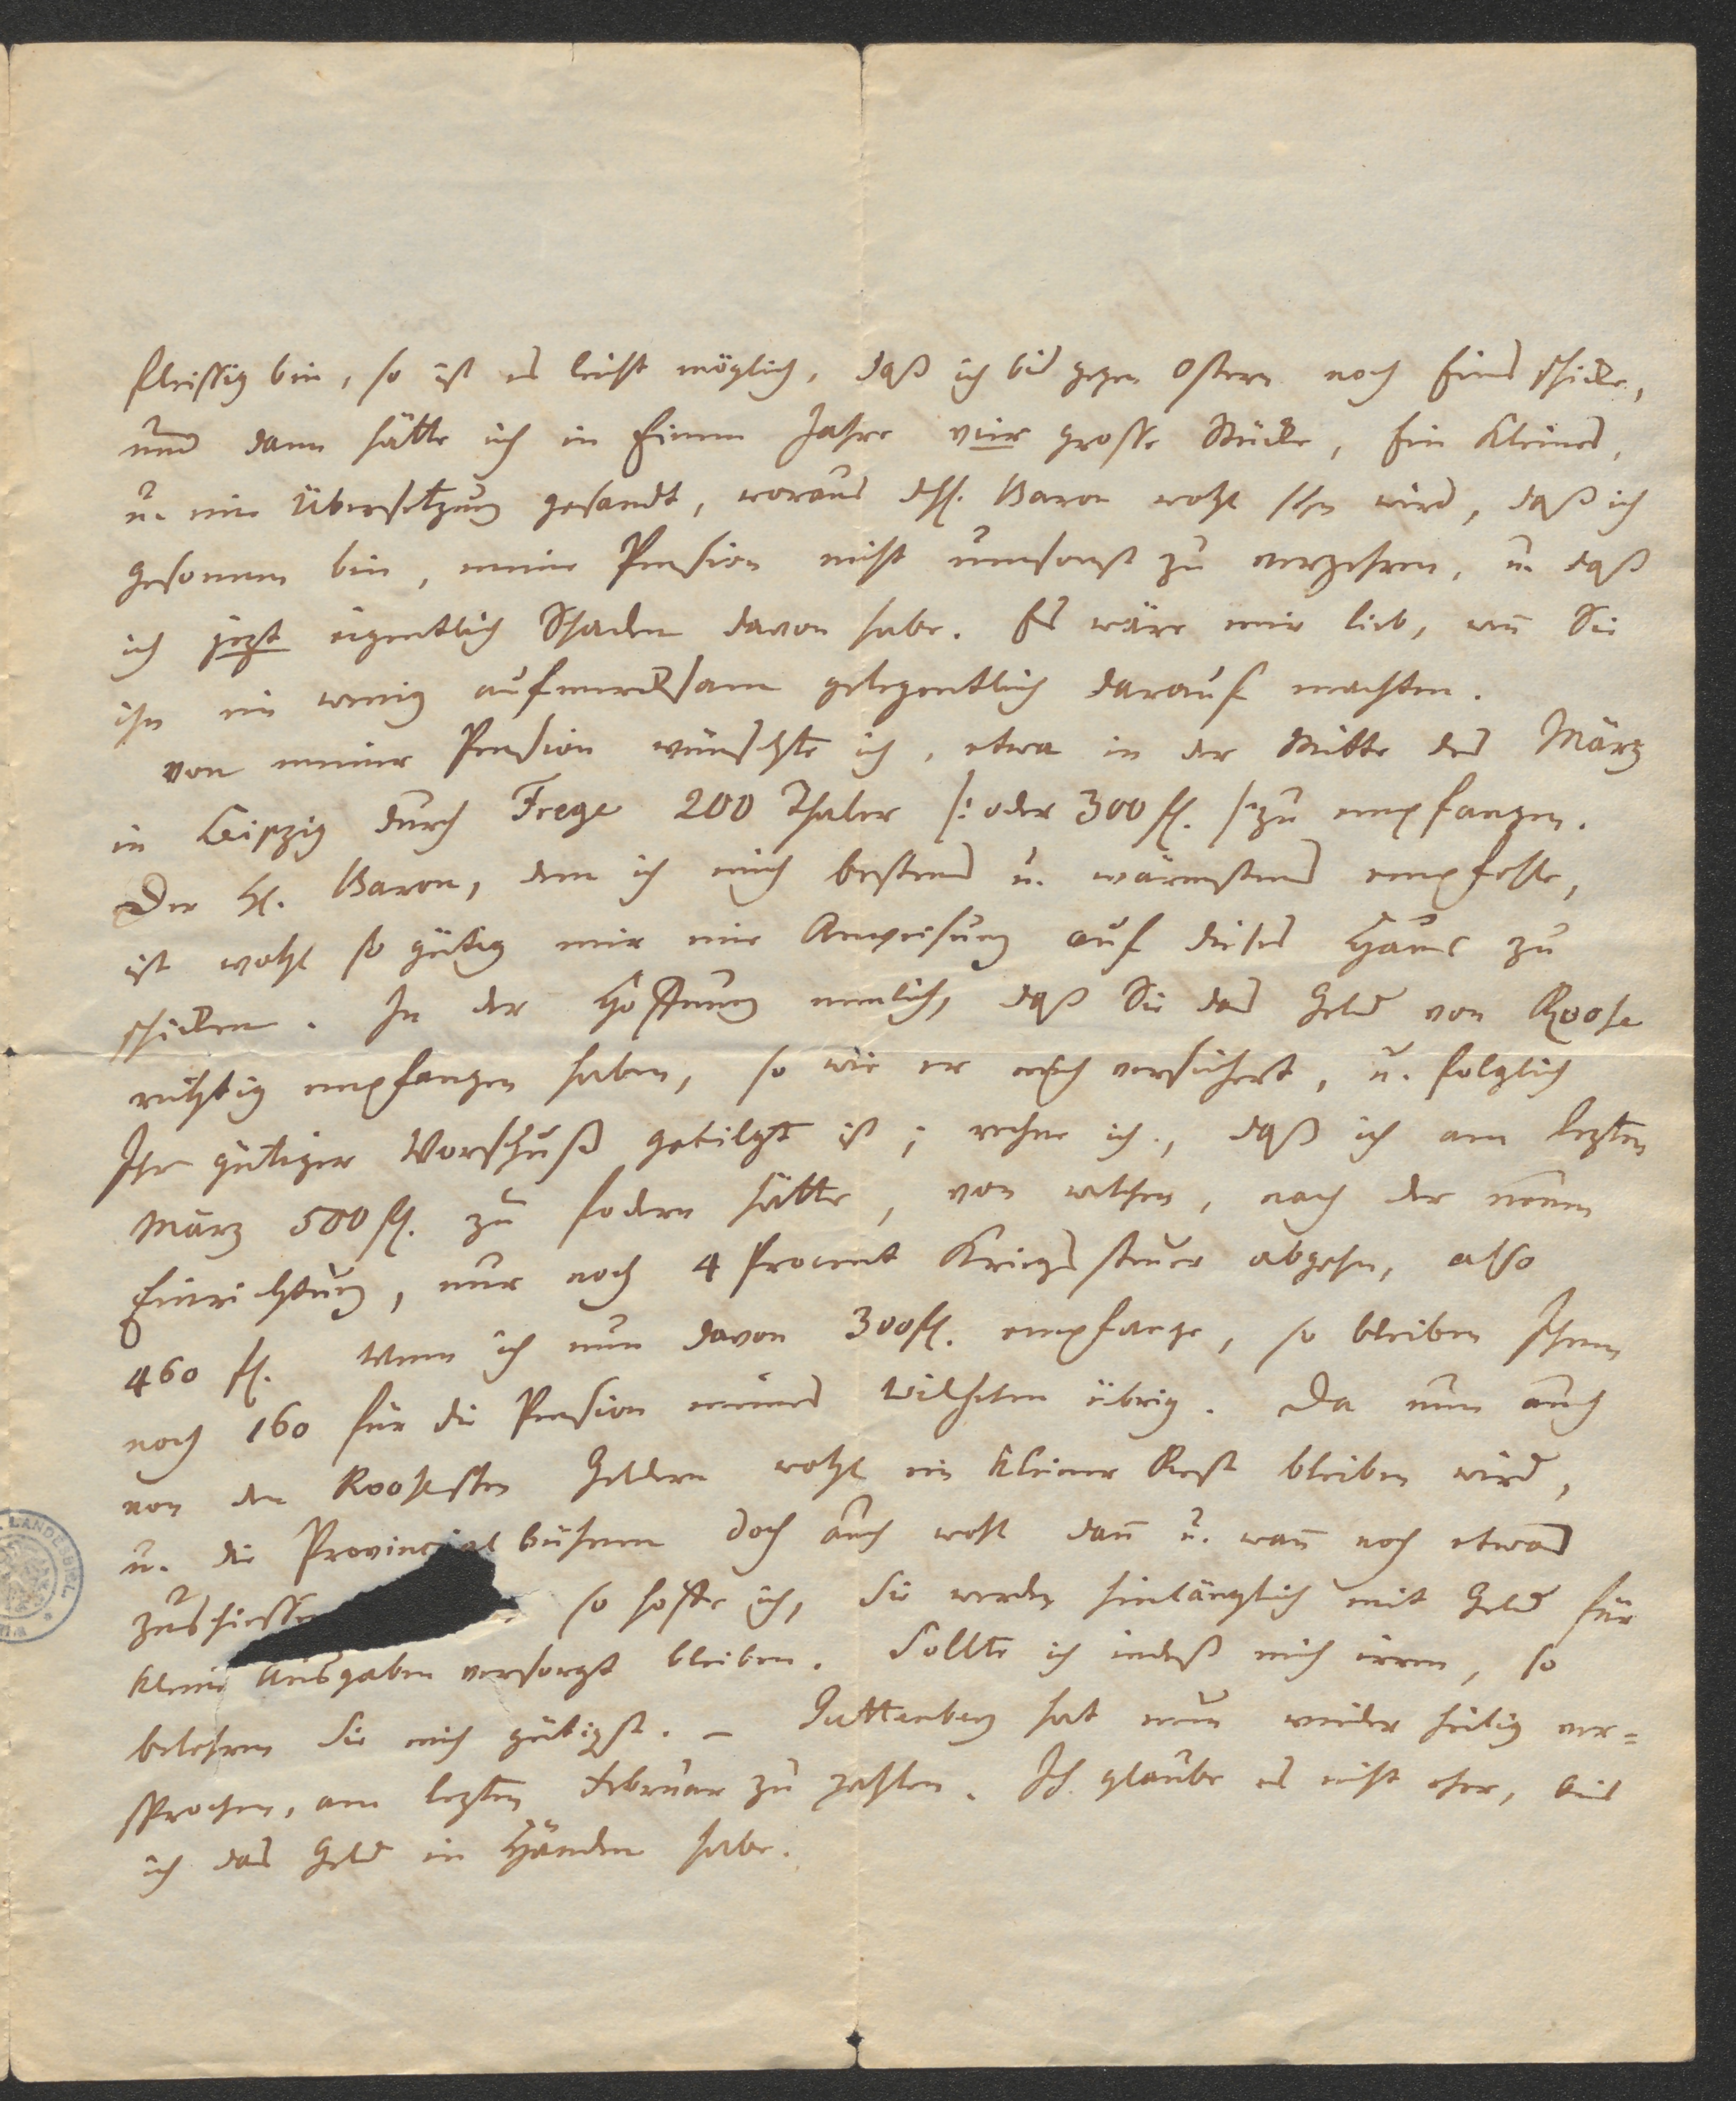 fleissig bin, so ist es leicht möglich, daß ich bis gegen Ostern noch Eins schicke,
und dann hätte ich in Einem Jahre vier grosse Stücke, Ein Kleines,
u. eine Übersetzung gesandt, woraus dH. Baron wohl sehn wird, daß ich
gesonnen bin, meine Pension nicht umsonst zu verzehren, u. daß
ich jezt eigentlich Schaden davon habe. Es wäre mir lieb, weñ Sie
ihn ein wenig aufmerksam gelegentlich darauf machten.
von meiner Pension wünschte ich, etwa in der Mitte des März
in Leipzig durch Frege 200 Thaler /: oder 300 fl. :/ zu empfangen.
Der H. Baron, dem ich mich bestens u. wärmstens empfehle,
ist wohl so gütig mir eine Anweisung auf dieses Haus zu
schicken. In der Hoffnung nemlich, daß Sie das Geld von Roose
richtig empfangen haben, so wie er mich versichert, u. folglich
Ihr gütiger Vorschuß getilgt ist; rechne ich, daß ich am lezten
März 500 fl. zu fodern hätte, von welchen, nach der neuen
Einrichtung, nur noch 4 Procent Kriegssteuer abgehn, also
460 fl. Wenn ich nun davon 300 fl. empfange, so bleiben Ihnen
noch 160 für die Pension meines Wilhelm übrig. Da nun auch
von den Rooseschen Geldern wohl ein kleiner Rest bleiben wird,
u. die Provincialbühnen doch auch wohl dañ u. wañ noch etwas
zuschiessen so hoffe ich, Sie werden hinlänglich mit Geld für
kleine Ausgaben versorgt bleiben. Sollte ich indeß mich irren, so
belehren Sie mich gütigst. – Guttenberg hat nun wieder heilig ver=
sprochen, am lezten Februar zu zahlen. Ich glaube es nicht eher, bis
ich das Geld in Händen habe.
LANDESBIBL